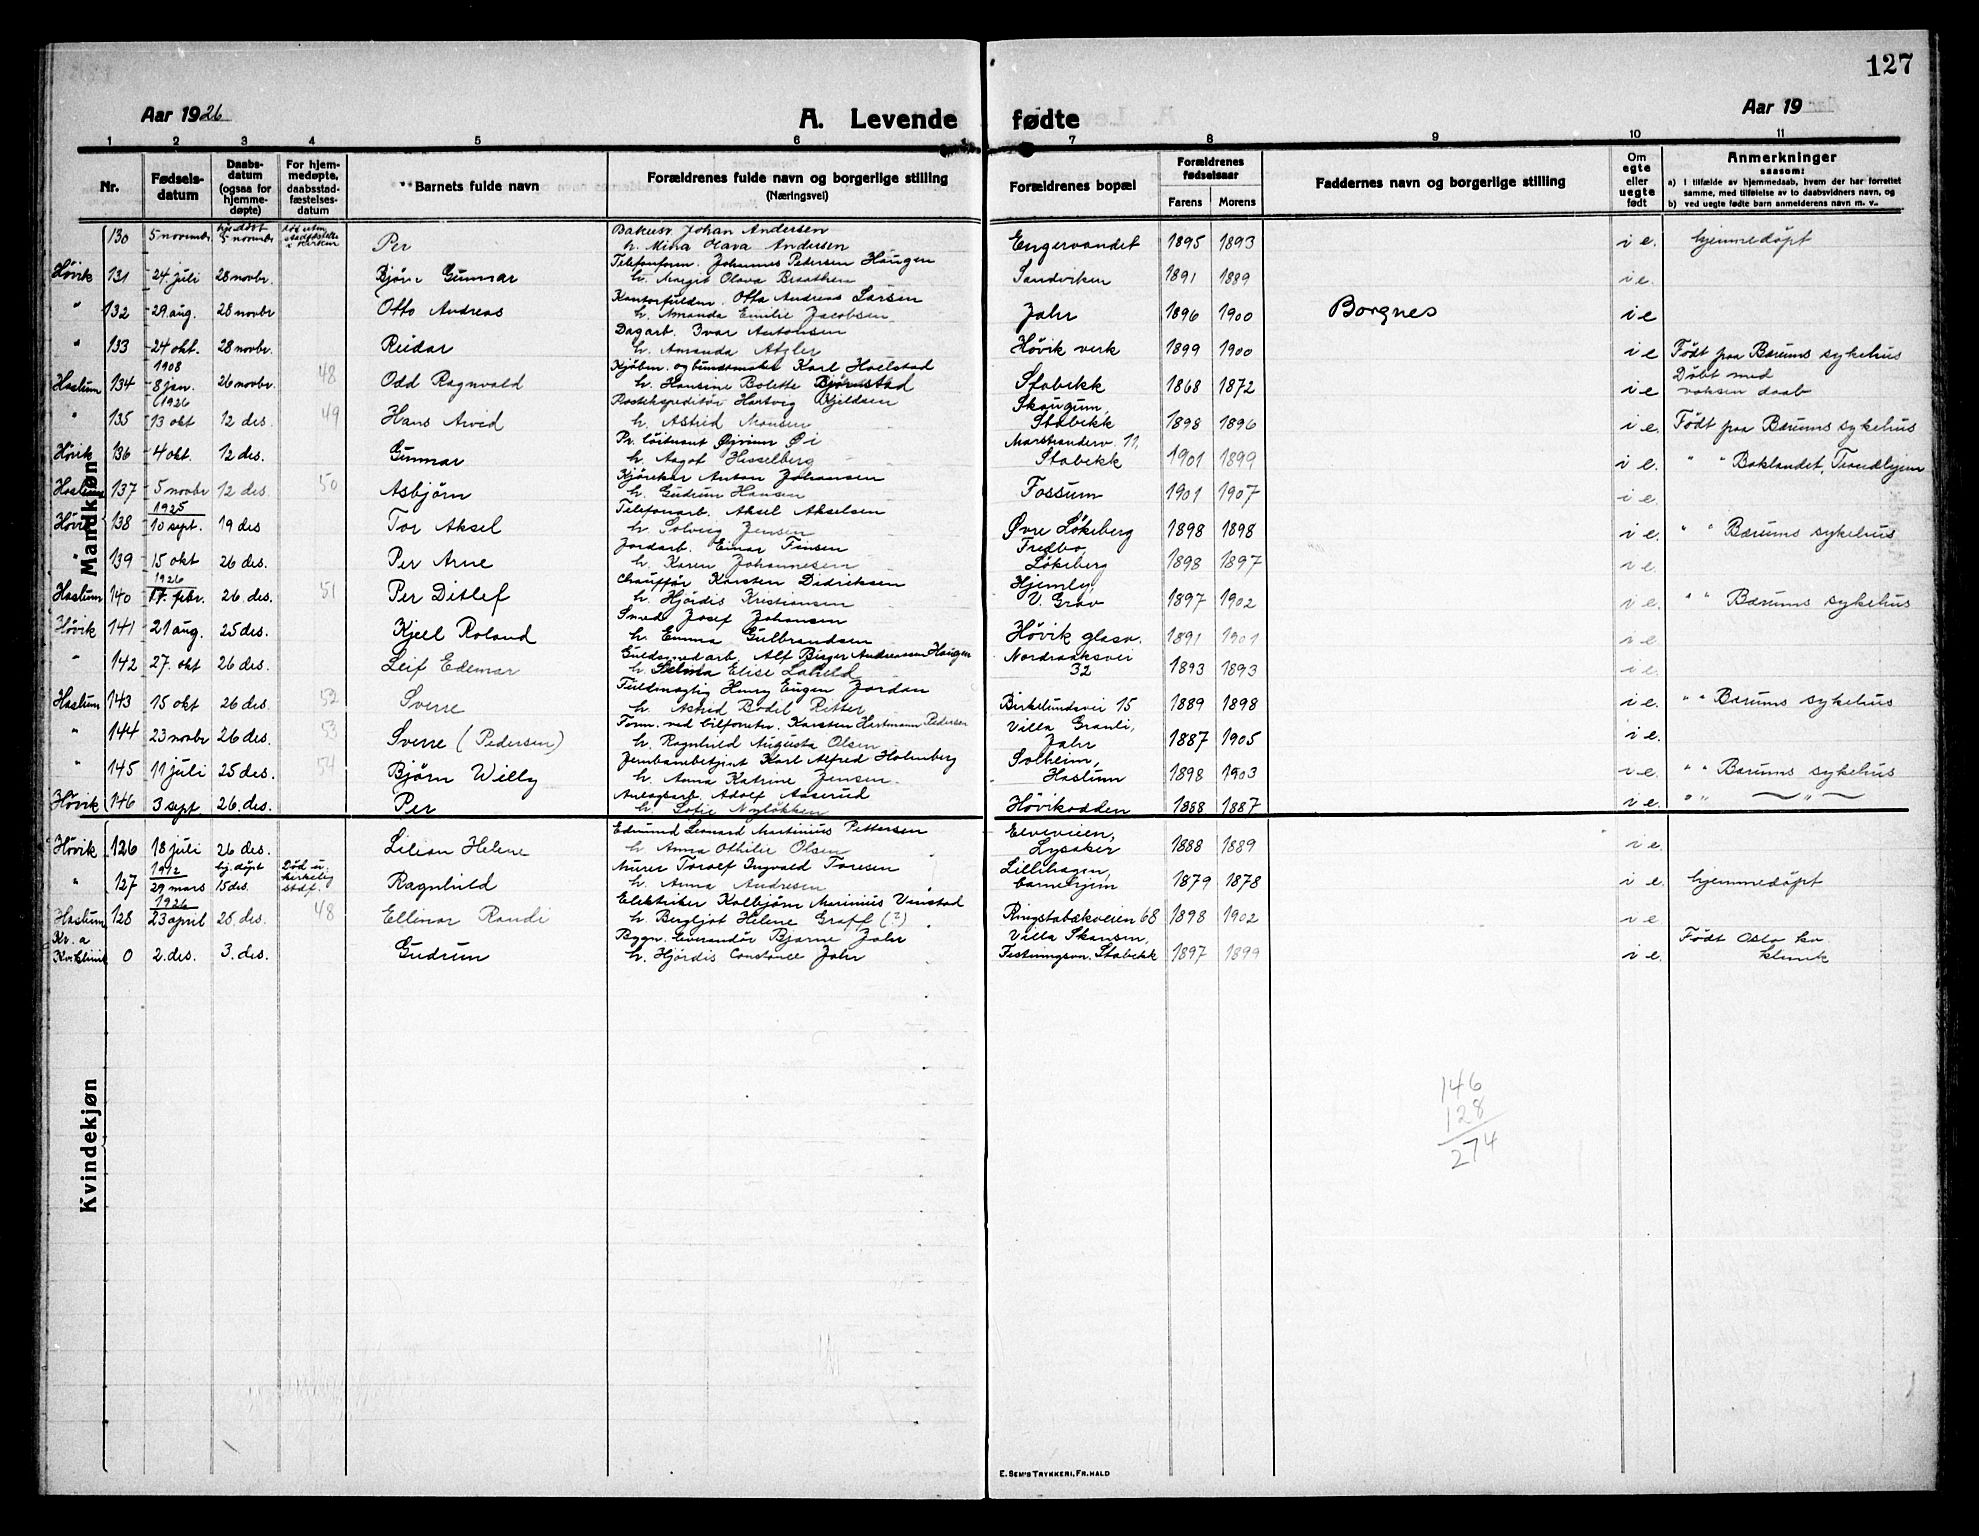 127
Aar 1926
A. Levende fødte
Aar 19
1 2 3 4 5 6 7 8 9 10 11
Nr.
Fødselsdatum
Daabsdatum (ogsaa for hjemmedøpte)
For hjemmedøpte, daabsstadfæstelsesdatum
Barnets fulde navn
Forældrenes fulde navn og borgerlige stilling (Næringsvei)
Forældrenes bopæl
Forældrenes fødselsaar
Farens Morens
Faddernes navn og borgerlige stilling
Om egte eller uegte født
Anmerkninger
saasom:
a) I tilfælde av hjemmedaab, hvem der har forrettet samme, med tilføielse av to daabsvidners navn, og
b) ved uegte fødte barn anmelderens navn m. v..
Mandkjøn
130 5 novembr. hjedøbt 5 novembr Per Johan Andersen Engervandet 1895 1893 i e. hjemmedøpt
h. Mina Olava Andersen
Høvik 131 24 juli 28 novbr. Bjørn Gunnar Telefonform. Johannes Pedersen Haugen Sandviken 1891 1889 i e.
h. Margit Olava Braathen
" 132 29 aug. 28 novbr Otto Andreas Otto Andreas Larsen Jahr 1896 1900 Borgnes i e
h. Amanda Emilie Jacobsen
" 133 24 okt. 28 novbr. Reidar Dagarb. Ivar Antonsen Høvik verk 1899 1900 i e Født paa Bærums sykehus
h. Amanda
Haslum 134 1908 8 jan. 26 novbr 48 Odd Ragnvald Karl Hoelstad Stabekk 1868 1872 i e Døbt med voksen daab
h. Hansine Bolette Bjørnstad
" 135 1926 13 okt 12 des. 49 Hans Arvid Postekspeditør Hartvig Kjeldsen Skaugum, Stabekk 1898 1896 i e. Født paa Bærums sykehus
h. Astrid Monsen
Høvik 136 4 okt. 12 des. Gunnar Pr. løitnant Øivind Øi Marstranderv. 11, Stabekk 1901 1899 i e. " " Baklandet, Trondhjem
h. Aagot Hesselberg
Haslum 137 5 novbr 12 des 50 Asbjørn Kjørekar Anton Johansen Fossum 1901 1907 i e.
h. Gudrun Hansen
Høvik 138 1925 10 sept. 19 des Tor Aksel Telefonarb. Aksel Akselsen Øvre Løkeberg 1898 1898 i e. " " Bærums sykehus
h. Solveig Jensen
" 139 15 okt 26 des. Per Arne Jordarb. Einar Finsen Fredbo, Løkeberg 1898 1897 i e.
h. Karen Johannesen
Haslum 140 1926 17. febr. 26. des. 51 Per Ditlef Chauffør Karsten Didriksen Hjemly, V. Grav 1897 1902 i e. " " Bærums sykehus
h. Hjørdis Kristiansen
Høvik 141 21 aug. 25 des. Kjell Roland Smed Josef Johansen Høvik glasv. 1891 1901 i e
h. Emma Gulbrandsen
" 142 27. okt 26 des. Leif Edemar Guldsmedarb. Alf Birger Andreassen Haugen Nordraaksvei 32 1893 1893 i e.
h. Selma Elise
Haslum 143 15 okt 26 des. 52 Sverre Fuldmægtig Henry Eugen Jordan Birkelundsvei 15 1889 1898 i e. " " Bærums sykehus
h. Astrid Bodil Ritter
" 144 23 novbr 26 des. 53 Sverre (Pedersen) Form. ved bilforretn. Karsten Hartmann Pedersen Villa Granli, Jahr 1887 1905 i e.
h. Ragnhild Augusta Olsen
" 145 11 juli 25 des. 54 Bjørn Willy Jernbanebetjent Karl Alfred Holmberg Solheim, Haslum 1898 1903 i e. " " Bærums sykehus
h. Anna Katrine Jensen
Høvik 146 3 sept. 26. des. Per Anlægsarb. Adolf Aaserud Høvikodden 1888 1887 i e. " " — " —
h. Sofie Nyløkken
Kvindekjøn
Høvik 126 18 juli 26 des. Lilian Helene Edmund Leonard Martinius Pettersen Elveveien, Lysaker 1888 1889 i e.
h. Anna Othilie Olsen
" 127 1912 29 mars hj. døpt 15 des. Død u. kirkelig stadf. Ragnhild Murer Toralf Ingvald Toresen Lillehagen, 1879 1878 i e. hjemmedøpt
h. Anna Andresen
Haslum 128 1926 23 april 26 des. 48 Ellinor Randi Elektriker Kolbjørn Marinius Vinstad Ringstabækveien 68 1898 1902 i e.
h. Bergljot Helene Graff (?)
Kr.a Kv.klinik 0 2. des. 3. des. Gudrun Bygn. Bjarne Jahr Villa Skansen, Festningsv. Stabekk 1897 1899 i e. Født Oslo kv klinik
h. Hjørdis Constance Jahr
146
128
274
E. SEM'S TRYKKERI, FR.HALD